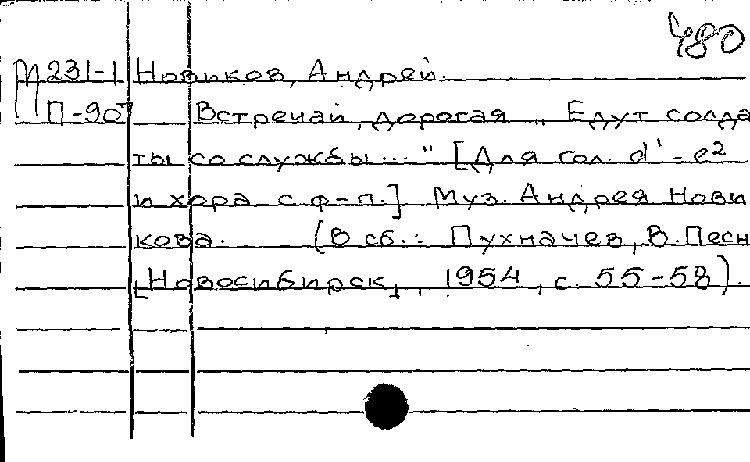 480
М 231-1 Новиков, Андрей.
П-907 Встречай, дорогая „Едут солда
ты со службы..." [Для гол. d¹-e²
и хора с ф-п.] Муз. Андрея Нови
кова. (В сб.: Пухначев, В. Песн
[Новосибирск], 1954, с. 55-58).